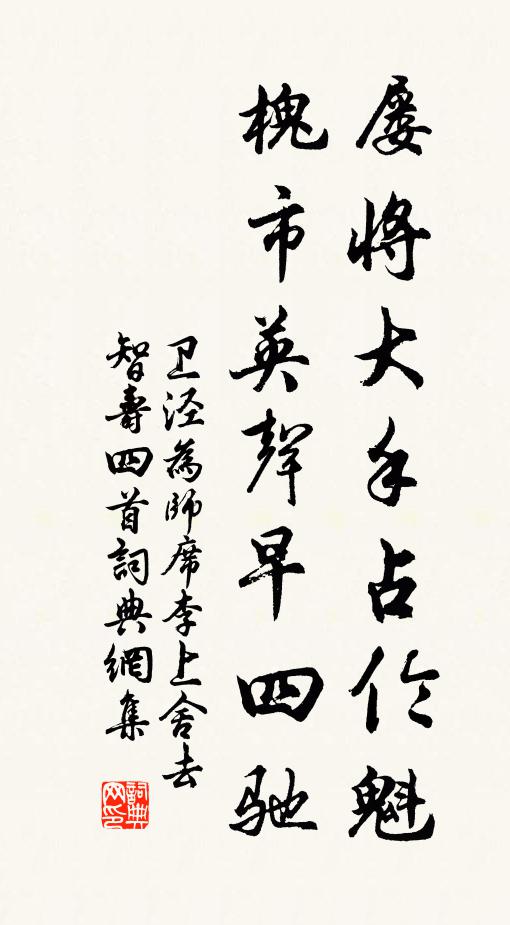 屢將大手占伦魁
槐市英聲早四馳
卫泾為師席李上舍去
智壽四首詞典網集
詞典网印